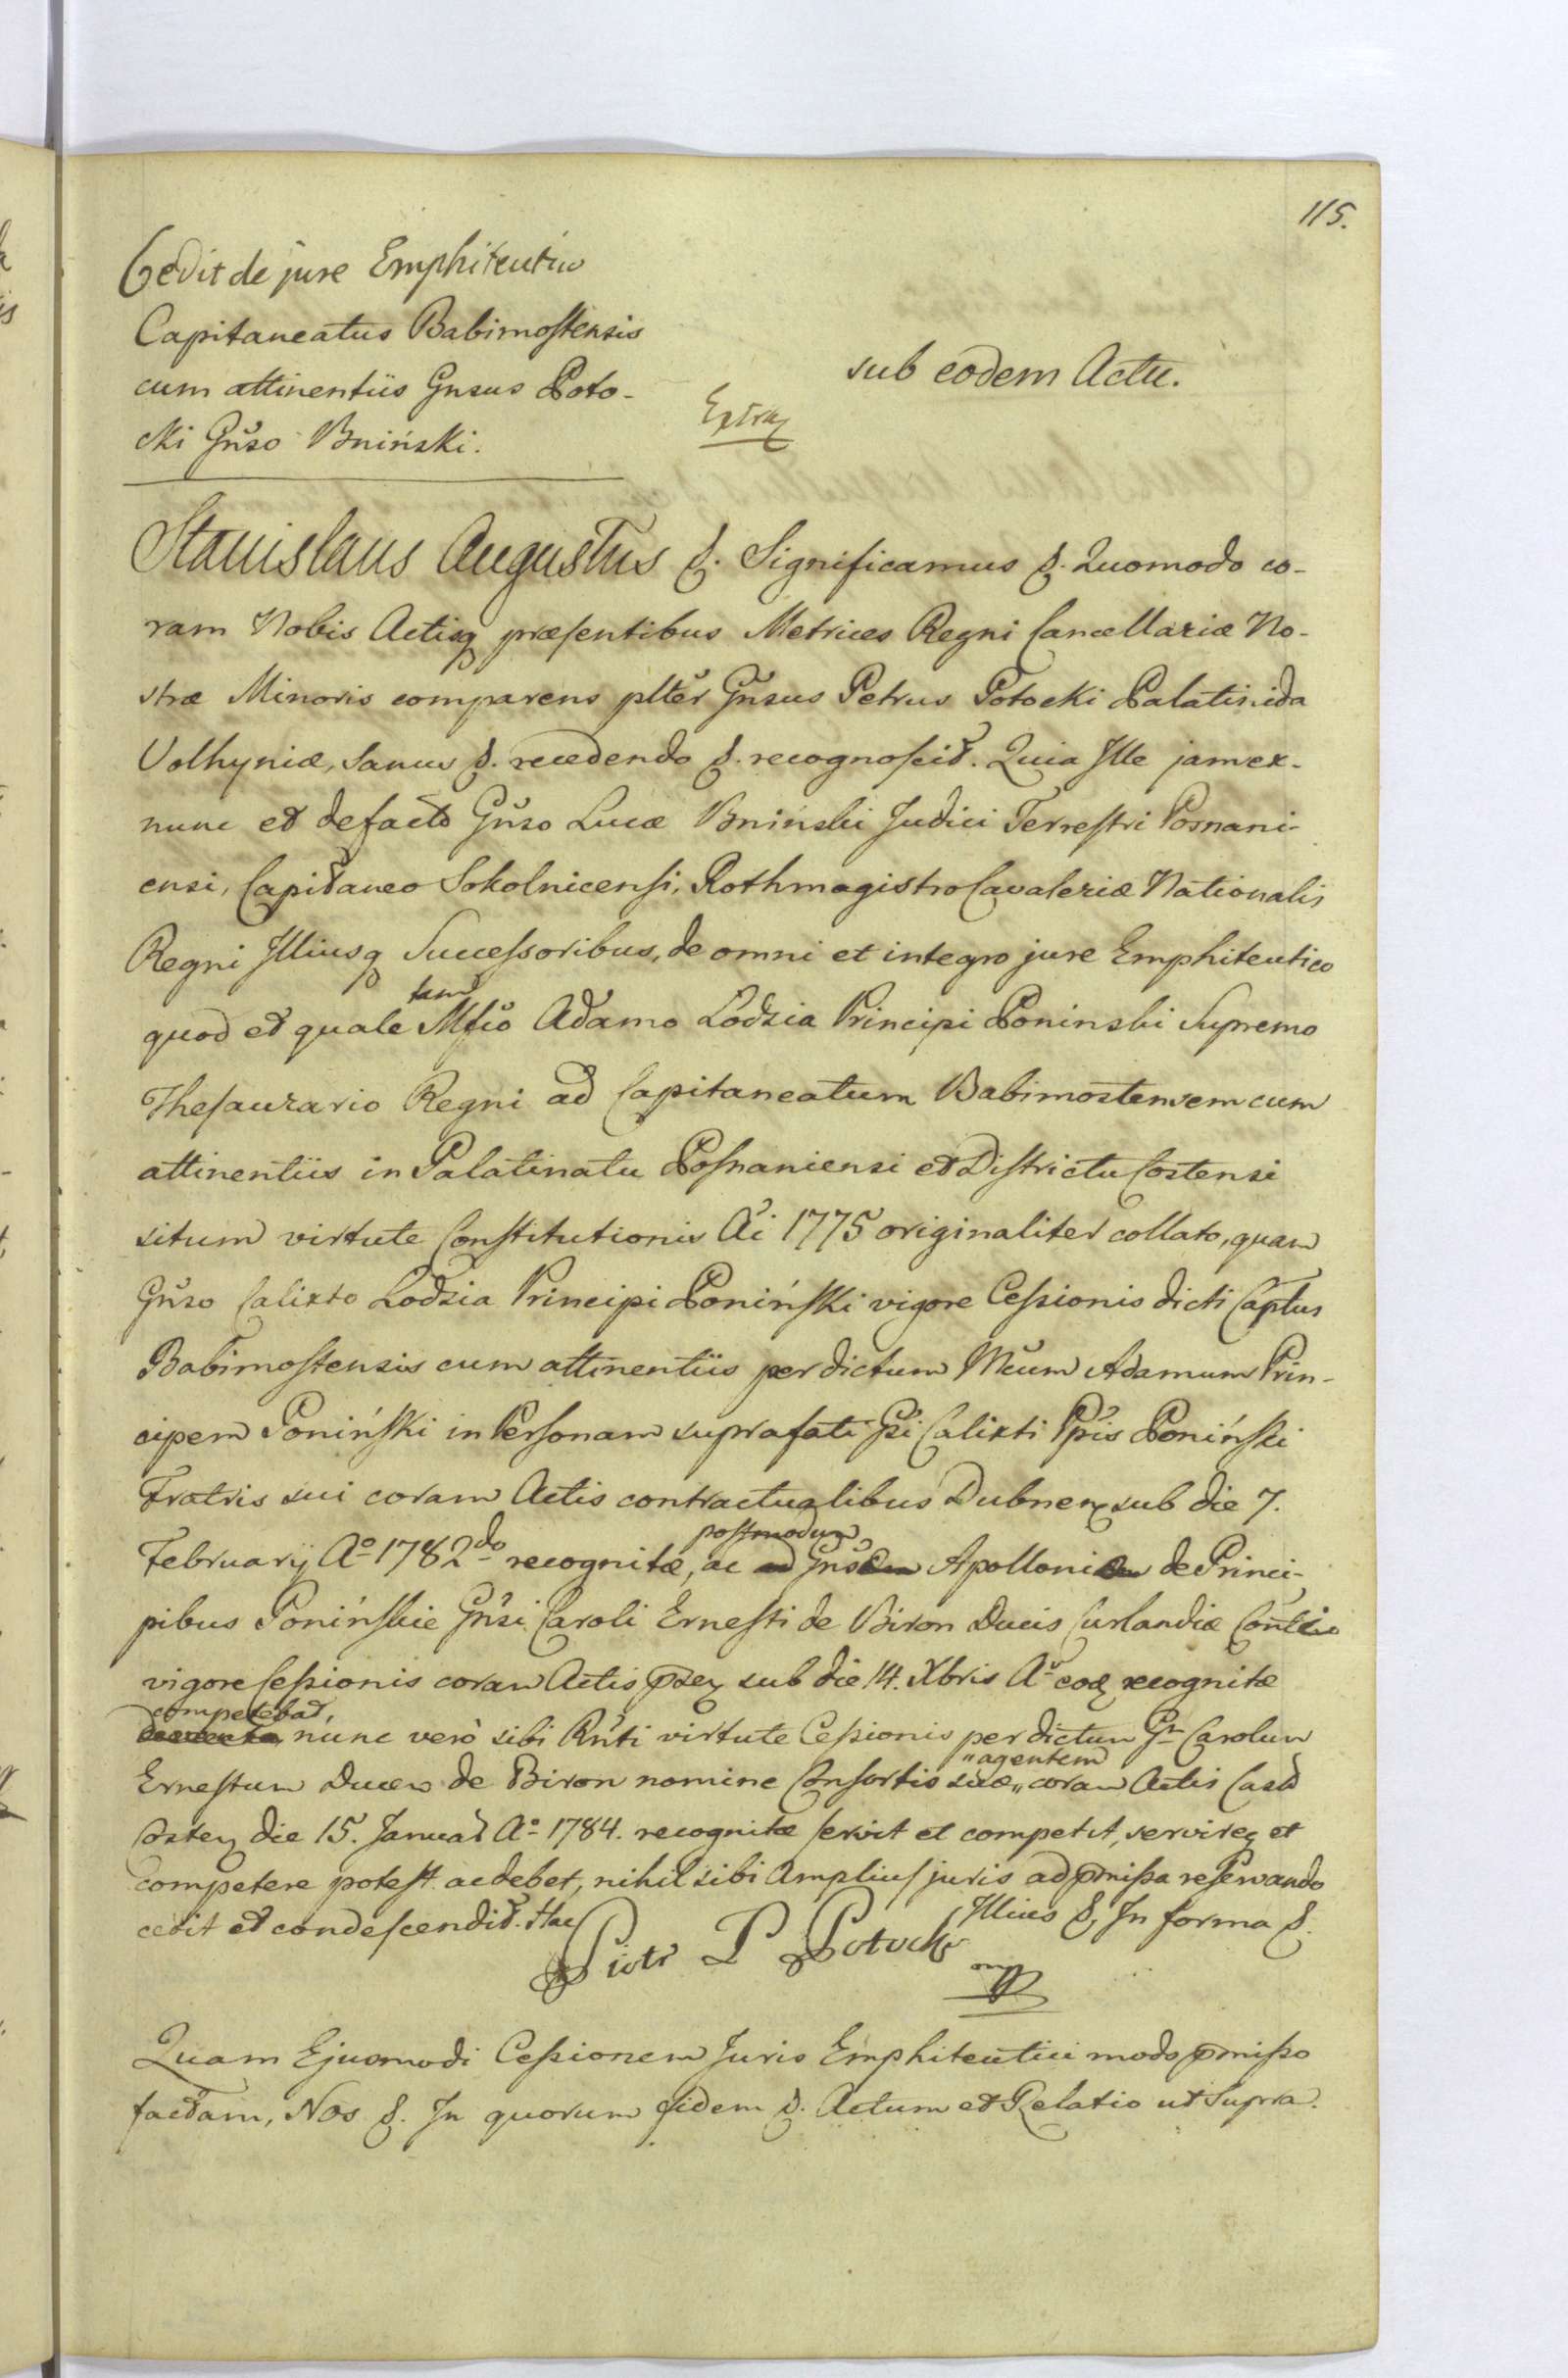 115.
Cedit de jure Emphiteutico
Capitaneatus Babimostensis
cum attinentiis Gnsus Poto-
cki Gnso Bniński.
Extrax
sub eodem Actu.
Stanislaus Augustus &. Significamus &. Quomodo co-
ram Nobis Actisq præsentibus Metrices Regni Cancellariæ No-
stræ Minoris comparens plter Gnsus Petrus Potocki Palatinida
Volhyniæ, sanus &. recedendo &. recognoscit. Quia Ille jam ex-
nunc et de facto Gnso Lucæ Bniński Judici Terrestri Posnani-
ensi, Capitaneo Sokolnicensi, Rothmagistro Cavaleriæ Nationalis
Regni Illiusq Successoribus, de omni et integro jure Emphiteutico
quod et quale tam Mfco Adamo Lodzia Principi Poninski Supremo
Thesaurario Regni ad Capitaneatum Babimostensem cum
attinentiis in Palatinatu Posnaniensi et Districtu Costensi
situm virtute Constitutionis Ai 1775 originaliter collato, quam
Gnso Calixto Lodzia Principi Poniński vigore Cessionis dicti Captus
Babimostensis cum attinentiis per dictum Mcum Adamum Prin-
cipem Poniński in Personam suprafati Gsi Calixti Ppis Poniński
Fratris sui coram Actis contractualibus Dubnen sub die 7.
Februarij Ao 1782do recognitæ, ac postmodum Gnsæ Apolloniæ de Princi-
pibus Ponińskie Gnsi Caroli Ernesti de Biron Ducis Curlandiæ
vigore Cessionis coram Actis psen sub die 14. Xbris Ao eod recognitæ
competebat, nunc verò sibi Rnti virtute Cessionis per dictum Gn Carolum
Ernestum Ducem de Biron nomine Consortis suæ „agentem„ coram Actis Cast
Costen die 15. Januar Ao 1784. recognitæ servit et competit, servireq et
competere potest ac debet, nihil sibi Amplius juris ad pmissa reservando
cedit et condescendit. Hac Illius &, In forma &.
Piotr P Potocki mp
Quam Ejusmodi Cessionem Juris Emphiteutici modo pmisso
factam, Nos &. In quorum fidem &. Actum et Relatio ut Supra.